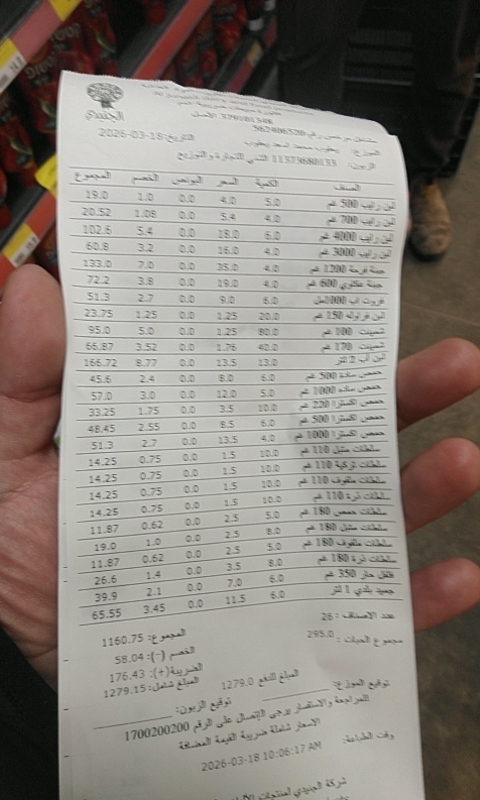 الجنيدي
مشتغل مرخص رقم 562406520 الأصل
التاريخ: 18-03-2026
الموزع: يعقوب محمد اسعد يعقوب
الزبون: 11373680133 للتجارة والتوزيع
الصنف الكمية السعر البونص الخصم المجموع
لبن رايب 500 غم 5.0 4.0 0.0 1.0 19.0
لبن رايب 700 غم 4.0 5.4 0.0 1.08 20.52
لبن رايب 4000 غم 6.0 18.0 0.0 5.4 102.6
لبن رايب 3000 غم 4.0 16.0 0.0 3.2 60.8
جبنة 1200 غم 4.0 35.0 0.0 7.0 133.0
جبنة عكاوي 600 غم 4.0 19.0 0.0 3.8 72.2
فروت اب 1000مل 6.0 9.0 0.0 2.7 51.3
لبن فراوله 150 غم 20.0 1.25 0.0 1.25 23.75
شمينت 100 غم 80.0 1.25 0.0 5.0 95.0
شمينت 170 غم 40.0 1.76 0.0 3.52 66.87
لبن أب 2 لتر 13.0 13.5 0.0 8.77 166.72
حمص سادة 500 غم 6.0 8.0 0.0 2.4 45.6
حمص سادة 1000 غم 5.0 12.0 0.0 3.0 57.0
حمص اكسترا 220 غم 10.0 3.5 0.0 1.75 33.25
حمص اكسترا 500 غم 6.0 8.5 0.0 2.55 48.45
حمص اكسترا 1000 غم 4.0 13.5 0.0 2.7 51.3
سلطات متبل 110 غم 10.0 1.5 0.0 0.75 14.25
سلطات تركية 110 غم 10.0 1.5 0.0 0.75 14.25
سلطات ملفوف 110 غم 10.0 1.5 0.0 0.75 14.25
سلطات ذرة 110 غم 10.0 1.5 0.0 0.75 14.25
سلطات حمص 180 غم 5.0 2.5 0.0 0.62 11.87
سلطات متبل 180 غم 8.0 2.5 0.0 1.0 19.0
سلطات ملفوف 180 غم 5.0 2.5 0.0 0.62 11.87
سلطات ذرة 180 غم 8.0 3.5 0.0 1.4 26.6
فلفل حار 350 غم 6.0 7.0 0.0 2.1 39.9
جميد بلدي 1 لتر 6.0 11.5 0.0 3.45 65.55
عدد الاصناف : 26
مجموع الحبات : 295.0
المجموع: 1160.75
الخصم (-): 58.04
الضريبة(+): 176.43
المبلغ شامل: 1279.15
المبلغ للدفع 1279.0
توقيع الموزع: توقيع الزبون:
للمراجعة والاستفسار يرجى الإتصال على الرقم 1700200200
الاسعار شاملة ضريبة القيمة المضافة
وقت الطباعة: 2026-03-18 10:06:17 AM
شركة الجنيدي لمنتجات